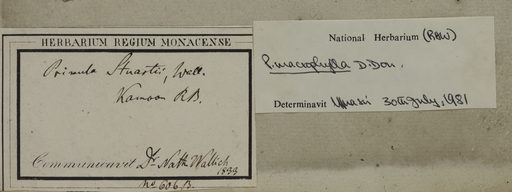 HERBARIUM REGIUM MONACENSE
Primula Stuartii, Wall.
Kamoon R.B.
Communicavit Dr. Nath. Wallich
1833
No 606 B.
National Herbarium (RAW)
P. macrophylla D. Don.
Determinavit 30th July, 1981